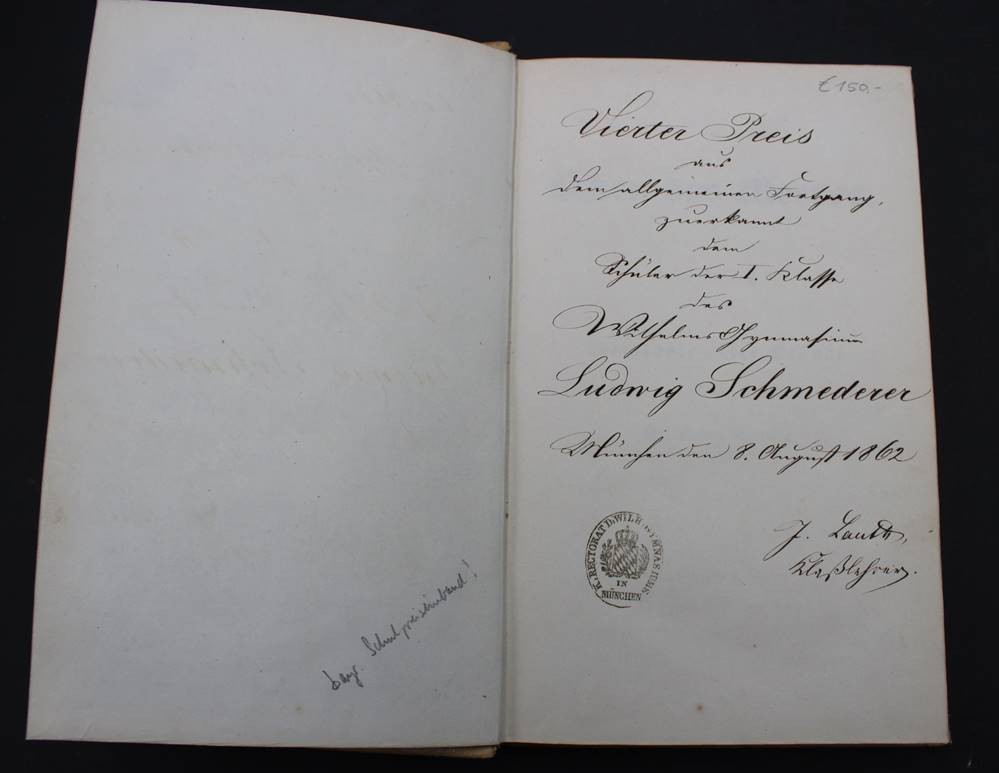 bayr. Schulpreiseinband!
€ 150.-
Vierter Preis
aus
dem allgemeinen Fortgang,
zuerkannt
dem
Schüler der I. Klasse
des
Wilhelms Gymnasium
Ludwig Schmederer
München den 8. August 1862
J.
Klaßlehrer.
K. RECTORAT D. WILH. GYMNASIUMS
IN
MÜNCHEN